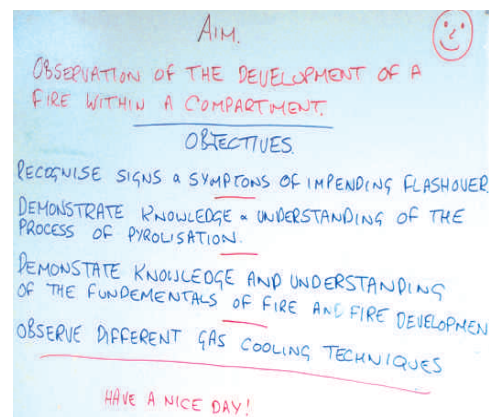 AIM.
OBSERVATION OF THE DEVELOPMENT OF A
FIRE WITHIN A COMPARTMENT.
OBJECTIVES.
RECOGNISE SIGNS & SYMPTONS OF IMPENDING FLASHOVER
DEMONSTRATE KNOWLEDGE & UNDERSTANDING OF THE
PROCESS OF PYROLISATION.
DEMONSTATE KNOWLEDGE AND UNDERSTANDING
OF THE FUNDEMENTALS OF FIRE AND FIRE DEVELOPMEN
OBSERVE DIFFERENT GAS COOLING TECHNIQUES
HAVE A NICE DAY!